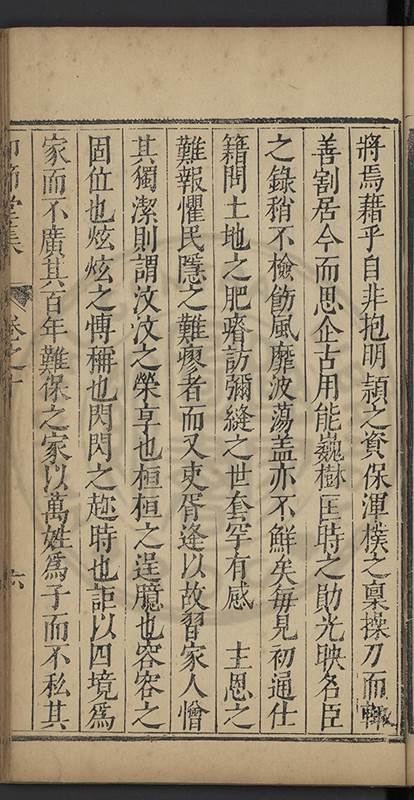 將焉藉乎自非抱明頴之資保渾樸之稟操刀而輒
善割居今而思企古用能巍樹匡時之勛光映名臣
之錄稍不檢飭風靡波蕩盖亦不鮮矣每見初通仕
籍問土地之肥瘠訪彌縫之世套罕有感 主恩之
難報懼民隱之難瘳者而又吏胥逢以故習家人憎
其獨潔則謂汶汶之榮享也桓桓之逞臆也容容之
固位也炫炫之博稱也閃閃之趂時也詎以四境爲
家而不廣其百年難保之家以萬姓爲子而不私其
卩節堂集 卷之十 六